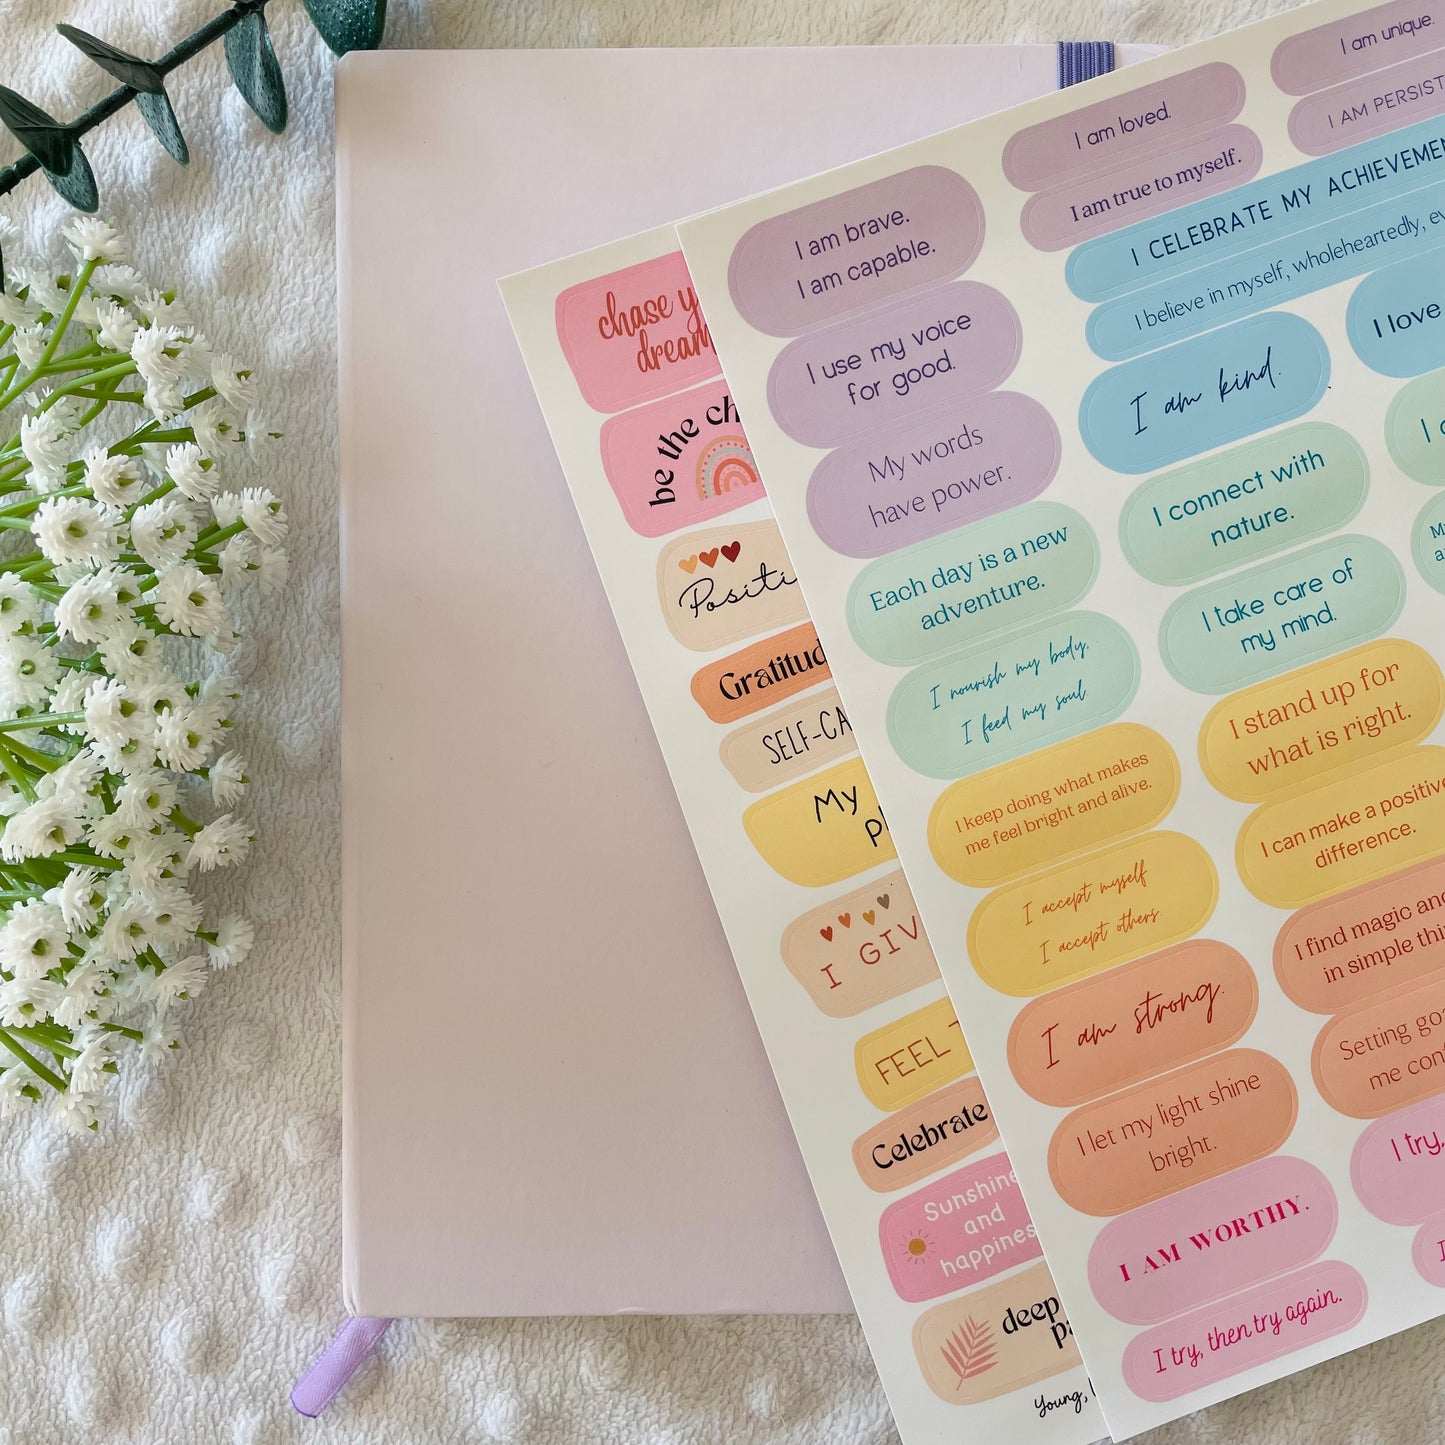 chase
dream
be the
Positi
Gratitud
SELF-CA
My
I GIV
FEEL
Celebrate
Sunshine
and
happines
deep
Young,
I am brave.
I am capable.
I use my voice
for good.
My words
have power.
Each day is a new
adventure.
I nourish my body.
I feed my soul
I keep doing what makes
me feel bright and alive.
I accept myself
I accept others.
I am strong.
I let my light shine
bright.
I AM WORTHY.
I try, then try again.
I am loved.
I am true to myself.
I am unique.
I AM PERSIST
I CELEBRATE MY ACHIEVEMEN
I believe in myself, wholeheartedly,
I am kind.
I love
I connect with
nature.
I take care of
my mind.
I stand up for
what is right.
I can make a positive
difference.
I find magic and
in simple thin
Setting go
me con
I try,